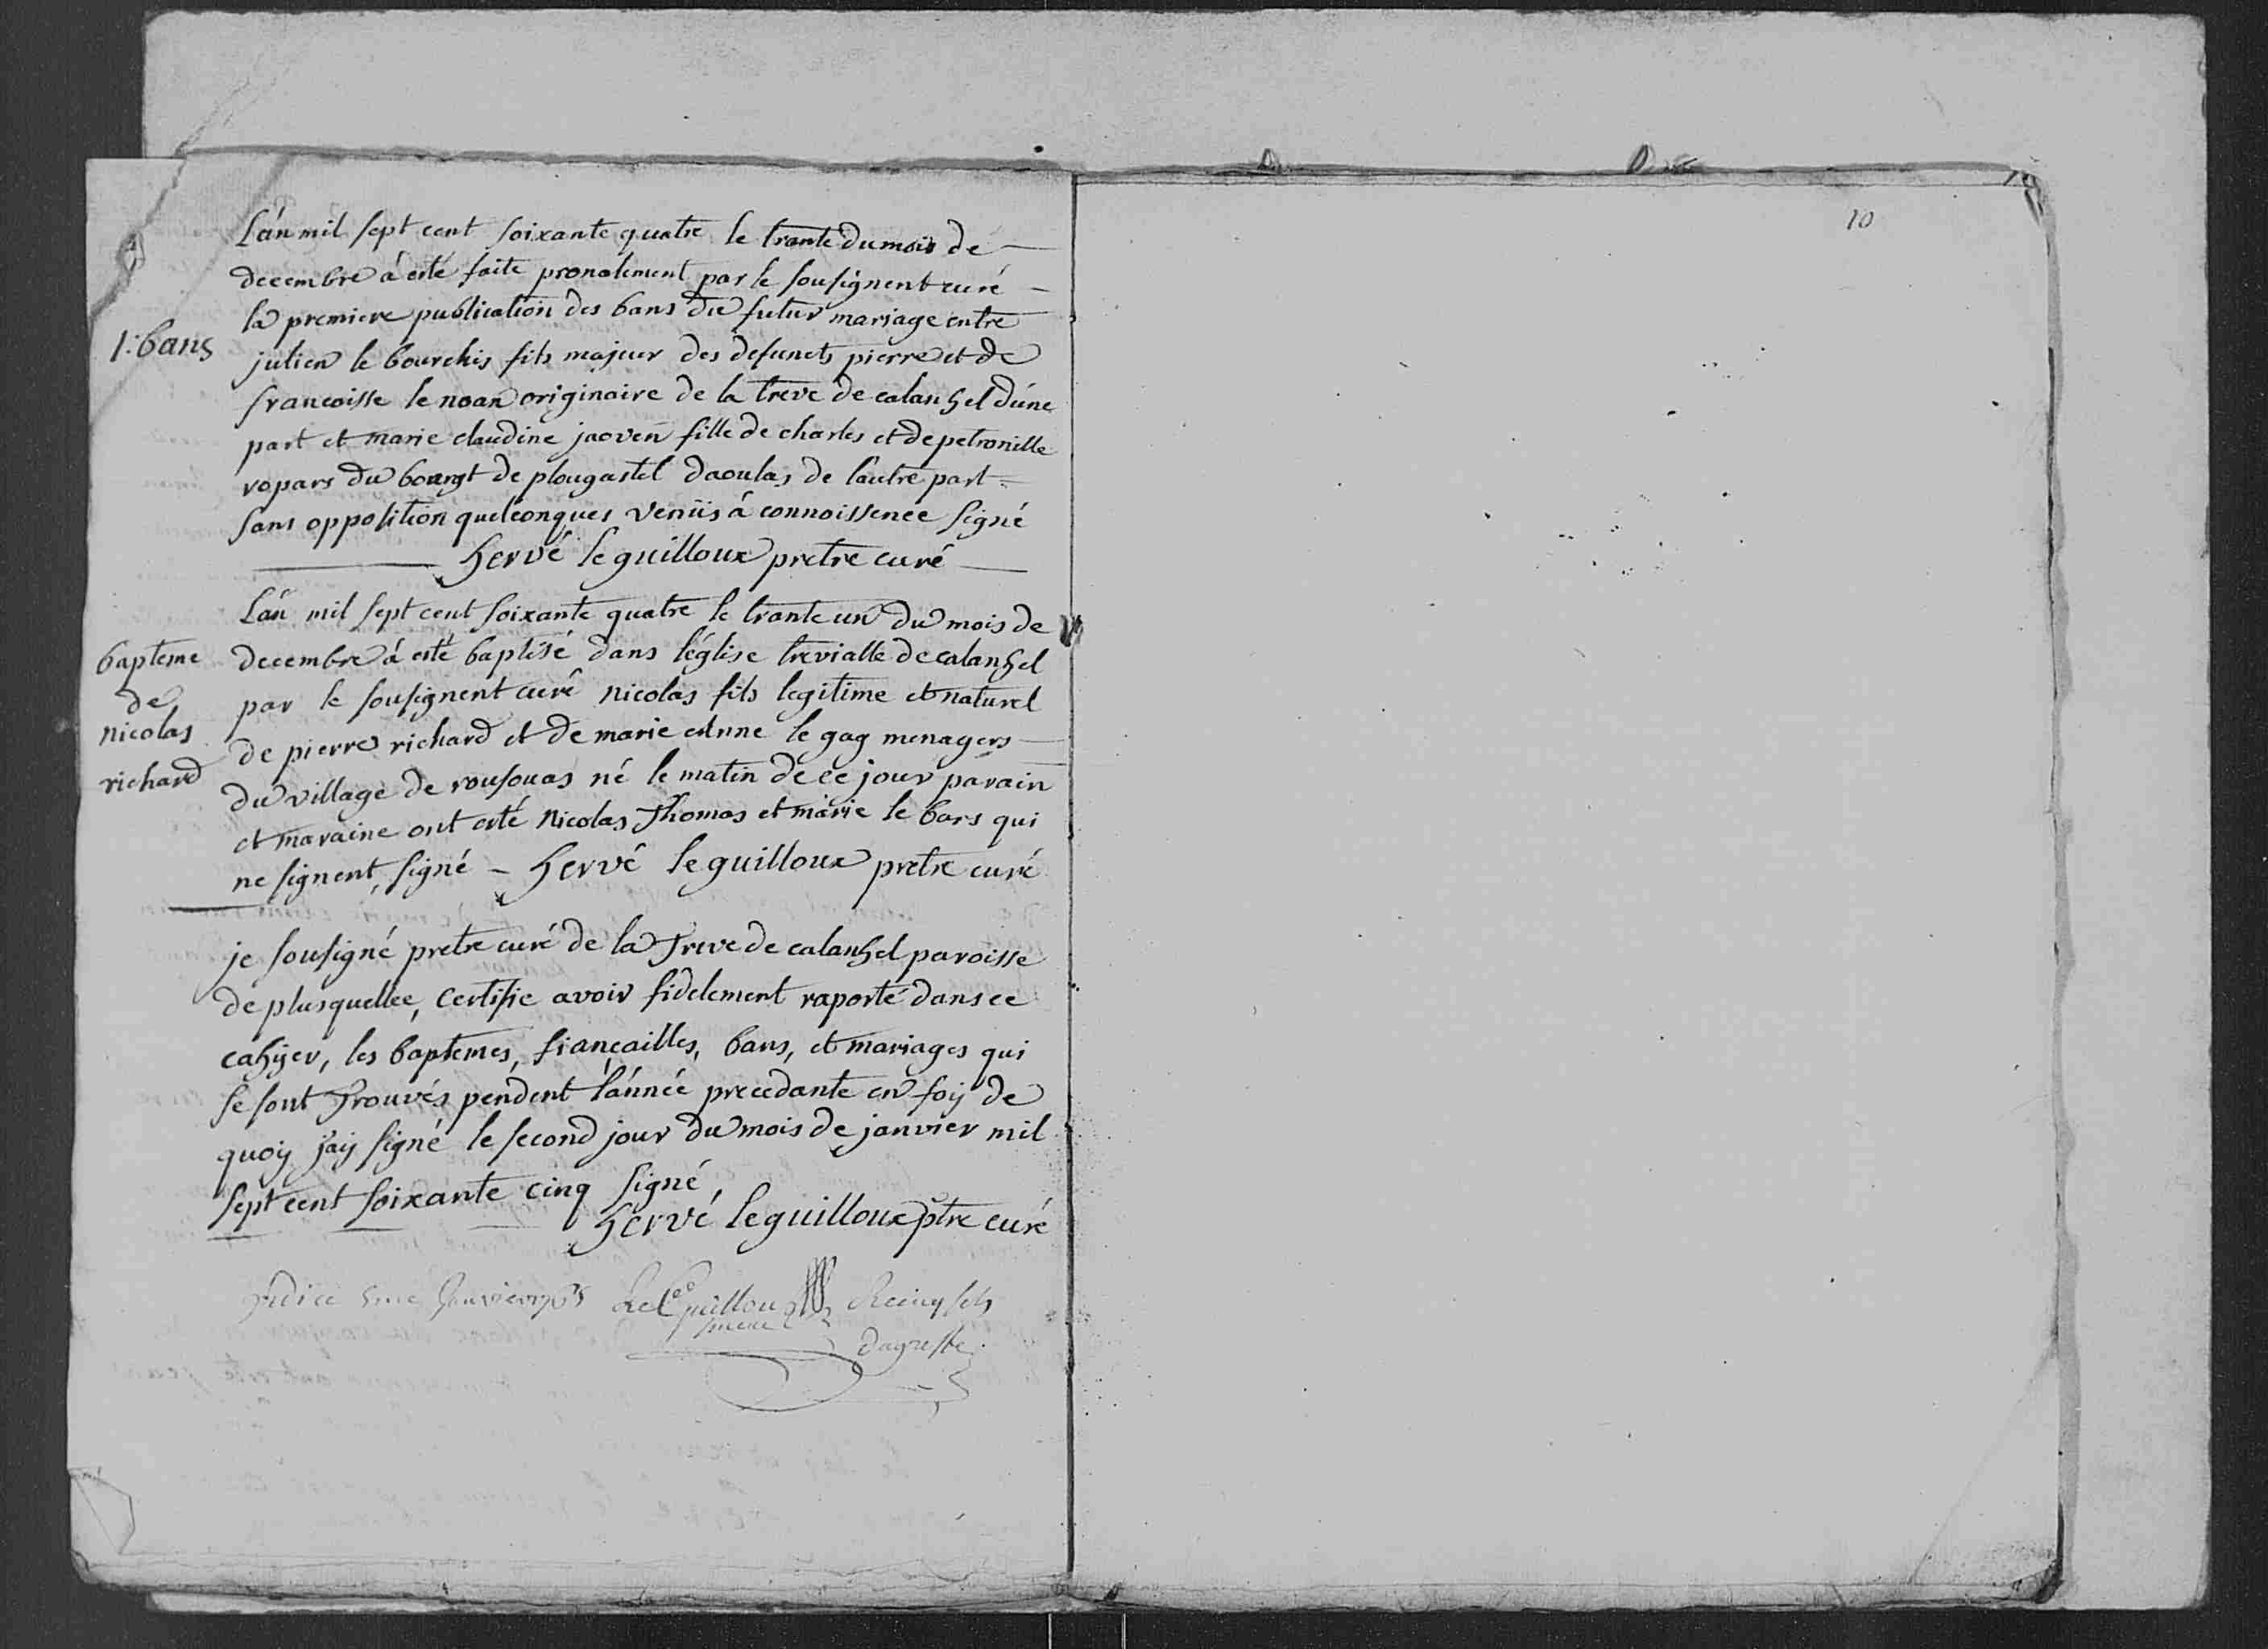 10
L'an mil sept cent soixante quatre le trante du mois de
decembre à esté faite pronalement par le sousignent curé
la premiere publication des bans du futur mariage entre
1: bans
julien le bourchis fils majeur des defuncts pierre et de
francoisse le noan originaire de la treve de calanhel d'úne
part et marie claudine jaoven fille de charles et de petronille
ropars du bourgt de plougastel daoulas de l'autre part
sans opposition quelconques venüs à connoissence signé
hervé le guilloux pretre curé
L'an mil sept cent soixante quatre le trante un du mois de
bapteme
decembre à esté baptisé dans l'église trevialle de calanhel
de
par le sousignent curé nicolas fils legitime et naturel
nicolas
de pierre richard et de marie Anne le gag menagers
richard
du village de rousouas né le matin de ce jour parain
et maraine ont esté Nicolas Thomas et marie le bars qui
ne signent, signé - hervé le guilloux pretre curé
je sousigné pretre curé de la Treve de calanhel paroisse
de plusquellec, certifie avoir fidelement raporté dans ce
cahyer, les baptemes, fiançailles, bans, et mariages qui
se sont Trouvés pendent l'année precedante en foy de
quoy j'ay signé le second jour du mois de janvier mil
sept cent soixante cinq signé
hervé le guilloux ptre curé